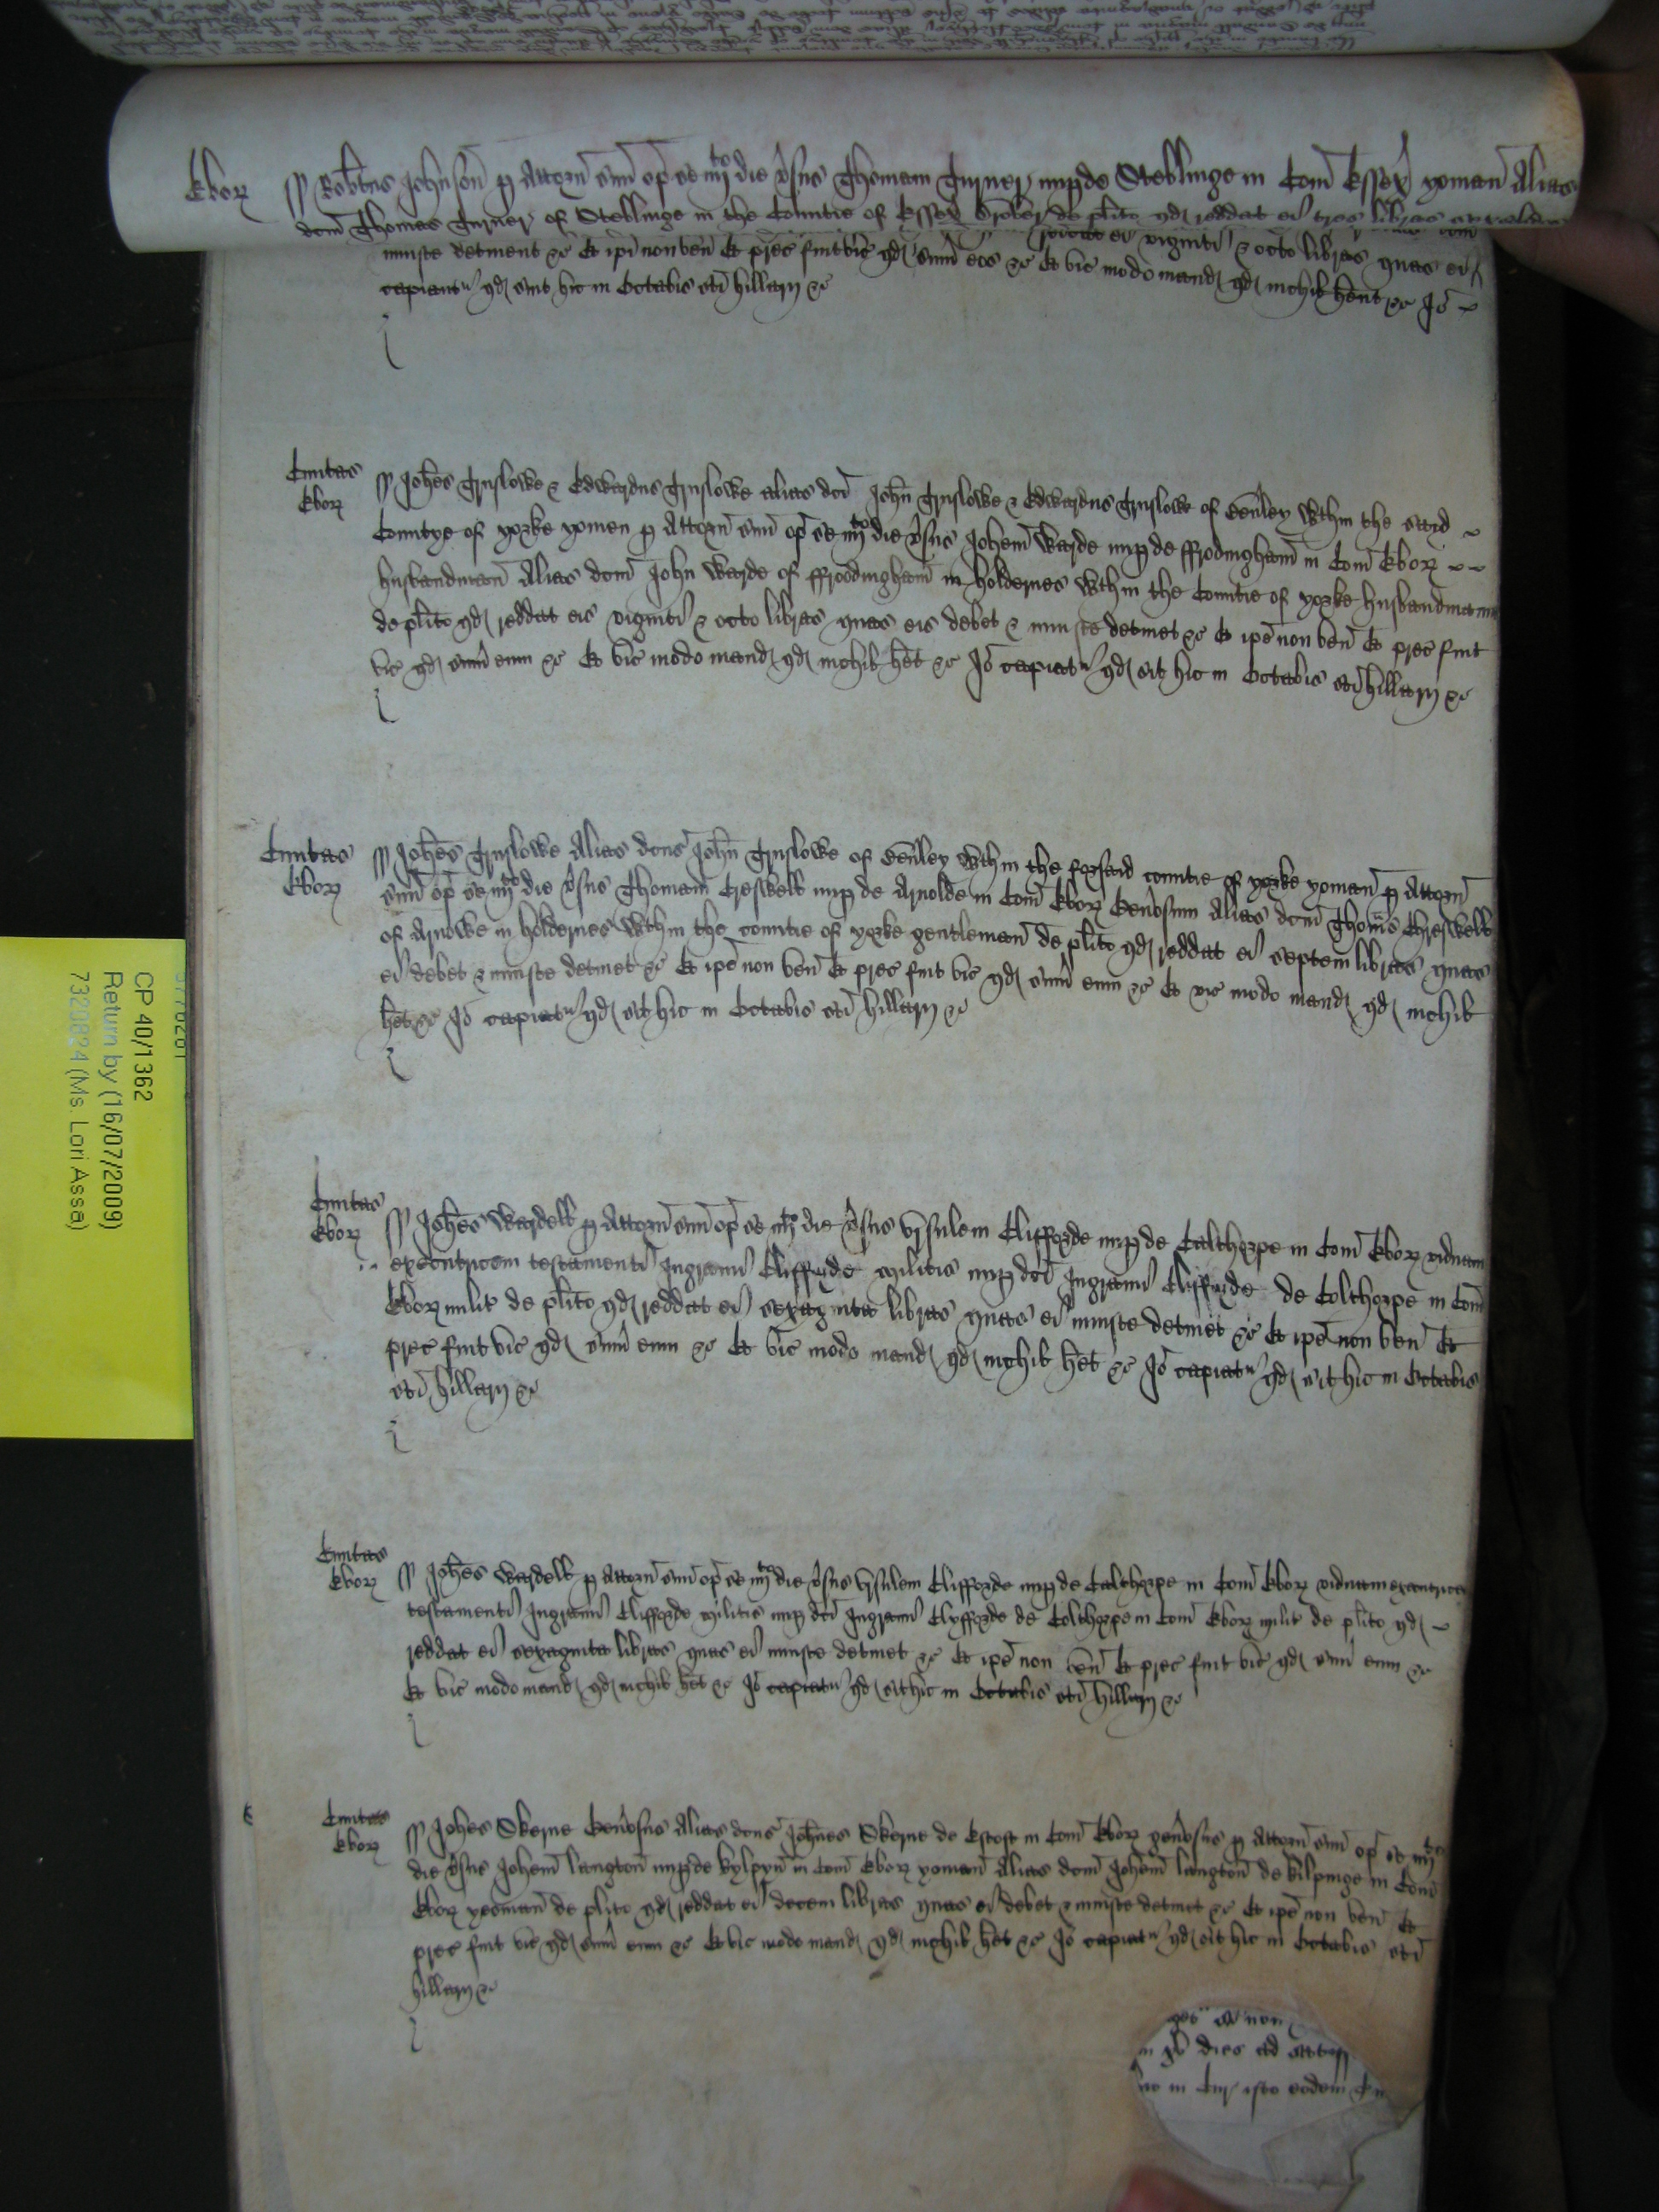 Ebor
Robtus Johnson p Attorn suu op se iiijto die vsus Thomam Turner nup de Steblinge in Com Essex yoman Alias
dcm Thomas Turner of Steblinge in the Countie of Essex de plito qd reddat ei tres libras
iniuste detinent &c Et ipi non ven Et prec fuit vic qd sum eos &c Et vic modo mand qd nichil hent &c Io
ei viginti & octo libras quas ei
capiantr qd sint hic in Octabis sci hillarij &c
Ciuitas
Ebor
Johes Truslowe & Edwardus Truslowe alias dci John Truslowe & Edwardus Truslowe of Benley wthin the said
Countye of yorke yomen p Attorn suu op se iiijto die vsus Johem Warde nup de ffrodingham in Com Ebor
husbandman Alias dcm John Warde of ffroodingham in holdernes wthin the Countie of yorke husbandman
de plito qd reddat eis viginti & octo libras quas eis debet & iniuste detinet &c Et ipe non ven Et prec fuit
vic qd sum eum &c Et vic modo mand qd nichil het &c Io capiatr qd sit hic in Octabis sci hillarij &c
Ciuitas
Ebor
Johes Truslowe Alias dcus John Truslowe of Benley wthin the forsaid countie of yorke yoman p Attorn
suu op se iiijto die vsus Thomam Creswell nup de Arnolde in Com Ebor Genosum Alias dcm Thoms Chreswell
of Arnowe in holdernes wthin the countie of yorke gentleman de plito qd reddat ei septem libras quas
ei debet & iniuste detinet &c Et ipe non ven Et prec fuit vic qd sum eum &c Et vic modo mand qd nichil
het &c Io capiatr qd sit hic in Octabis sci hillarij &c
Ciuitas
Ebor
Johes Wardell p Attorn suu op se iiijto die vsus Vrsulem Clifforde nup de Calthorpe in Com Ebor viduam
executricem testamenti Ingrami Cliffurde militis nup dci Ingrami Cliffurde de Colthorpe in Com
Ebor milit de plito qd reddat ei sexaginta libras quas ei iniuste detinet &c Et ipe non ven Et
prec fuit vic qd sum eum &c Et vic modo mand qd nichil het &c Io capiatr qd sit hic in Octabis
sci hillarij &c
Ciuitas
Ebor
Johes Wardell p Attorn suu op se iiijto die vsus Vrsulem Clifforde nup de Calthorpe in Com Ebor viduam executricem
testamenti Ingrami Clifforde militis nup dci Ingrami Clyfforde de Colthorpe in Com Ebor milit de plito qd
reddat ei sexaginta libras quas ei iniuste detinet &c Et ipe non ven Et prec fuit vic qd sum eum &c
Et vic modo mand qd nichil het &c Io capiatr qd sit hic in Octabis sci hillarij &c
Ciuitas
Ebor
Johes Skerne Genosus Alias dcus Johnes Skerne de Estoft in Com Ebor genosus p Attorn suu op se iiijto
die vsus Johem langton nup de kylpyn in Com Ebor yoman Alias dcm Johem langton de kilpinge in Com
Ebor yeoman de plito qd reddat ei decem libras quas ei debet & iniuste detinet &c Et ipe non ven Et
prec fuit vic qd sum eum &c Et vic modo mand qd nichil het &c Io capiatr qd sit hic in Octabis sci
hillarij &c
non
dies
in Cur isto eodem
CP 40/1362
Return by (16/07/2009)
7320824 (Ms. Lori Assa)